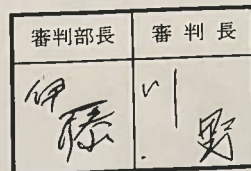 審判部長 審判長
伊藤 川野